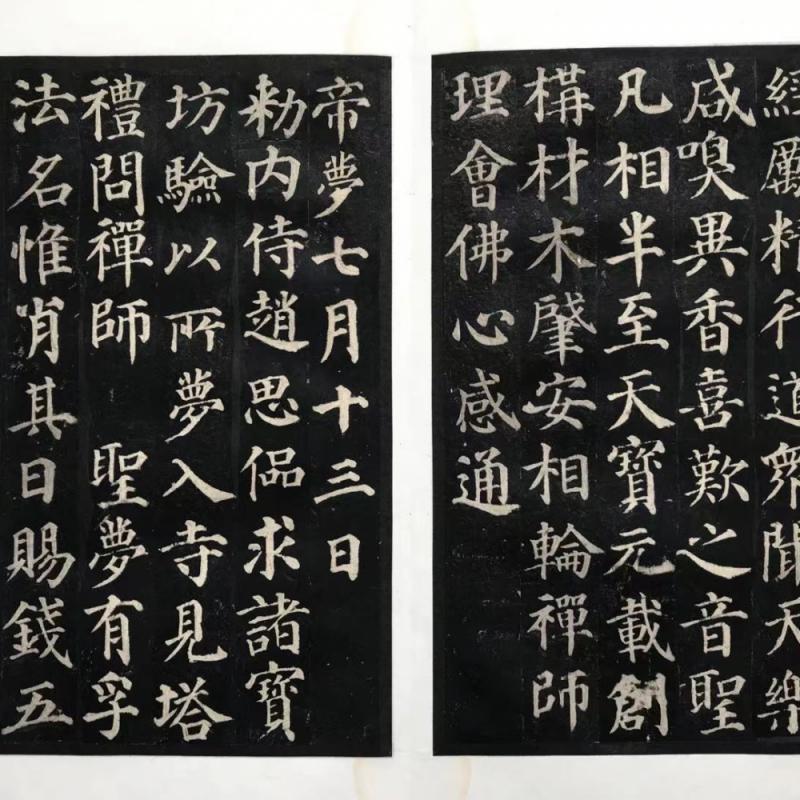 經勵精行道衆聞天樂
咸嗅異香喜歎之音聖
凡相半至天寶元載創
構材木肇安相輪禪師
理會佛心感通
帝夢七月十三日
勑内侍趙思偘求諸寶
坊驗以所夢入寺見塔
禮問禪師　聖夢有孚
法名惟肖其日賜錢五